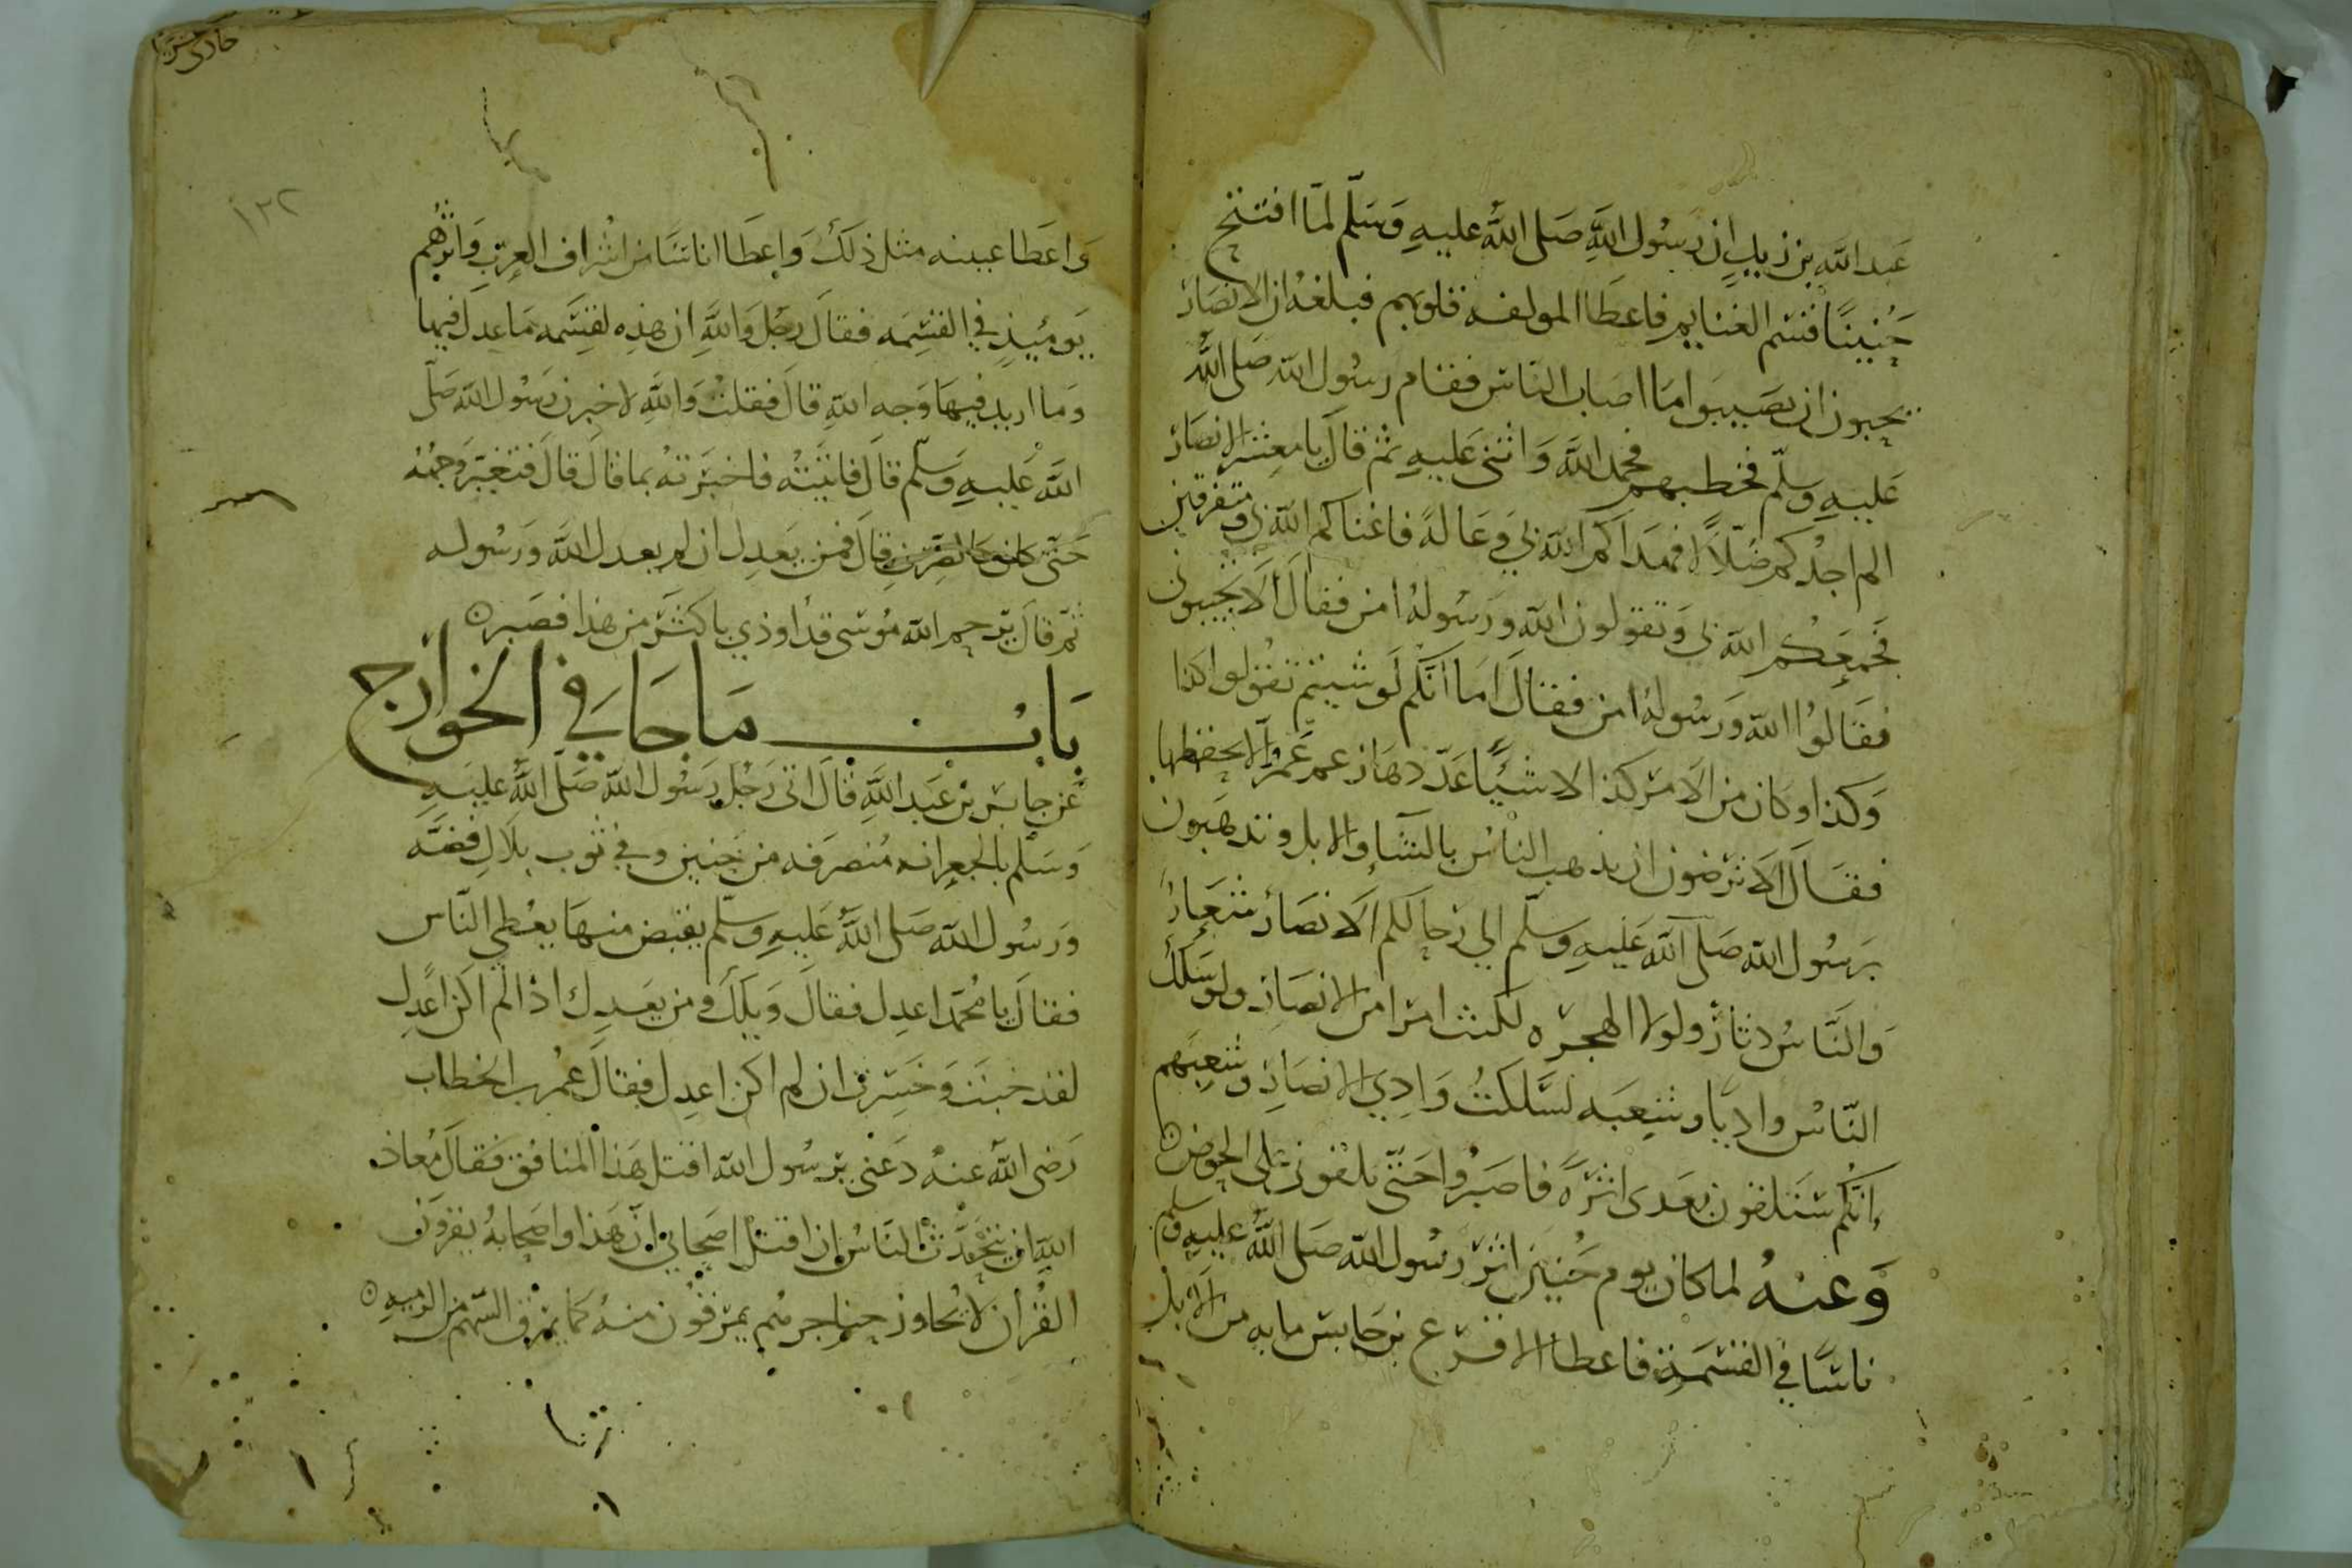 عَبد الله بن زيدٍ ان رَسُول اللهِ صَلى اللهُ عليهِ وَسَلّم لمّا افتتح
حُنينًا قسَم الغنايم فاعطَا المولفه قلوبهم فبلغهُ ان الانصَار
يحبون ان يصَيبوا مَا اصاب الناس فقام رسُول الله صَلى اللهُ
عَليهِ وسلّم فخطبهم فحمد اللهَ وَاثنى عَليهِ ثم قالَ يا معشر الانصَار
الم اجدْكم ضلّالاً فهَداكم الله بي وعَالةً فاغناكم الله بي ومتفرقين
فجمعَكم الله بي وَتقولون الله ورَسُولهُ امن فقال الا تجيبوني
فقَالوُا الله ورَسُولهُ امن فقال امَا انّكم لَو شيتم تقولوا كذا
وَكذا وكان من الامر كذا لاشيًا عَدّدهَا زعم عَمرٌ الا يحفظها
فقَالَ الا ترضون ان يذهب الناسُ بالشآءِ والابل وتذهَبون
برَسُول الله صَلى الله عَليهِ وسلّم الي رحالكم الانصَار شعَارٌ
وَالنّاسُ دثارٌ ولولا الهجره لكنت امرا من الانصَارِ ولو سَلكَ
النّاسُ واديًا وشعبَه لسَلكتُ وَادِي الانصَارِ وشعبَهم
انّكُم سَتلقون بعَدى اثرَةً فاصبرُوا حَتّى تلقوني على الحوضِ
وَعنهُ لما كان يوم حُنين اثر رسُول الله صَلى اللهُ عليهِ وسلم
ناسًا في القسمَةِ فاعطا الاقرع بن حَابس مايه من الابل
حادى عشر
١٣٢
وَاعَطا عيينه مثل ذلكَ وَاعطَا اناسًا من اشرافِ العربِ وَاثرهُم
يَوميذٍ في القسِمَه فقالَ رجُل وَاللهِ ان هذِه لقسمَه مَا عدِلَ فيها
وَما اريد فيهَا وَجه اللهِ قالَ فقلتُ وَاللهِ لاخبرن رَسُول الله صَلّى
اللهُ عَليهِ وَسلّم قالَ فاتَيتهُ فاخبَرتهُ بما قالَ قالَ فتغيّر وَجهُه
حَتّى كان كالصّرفِ قالَ فمن يَعدِل ان لم يعدل اللهَ ورَسُوله
ثم قالَ يَرحم الله مُوسى قد اوذي باكثرَ من هَذا فصَبر
بَابُ مَا جَا في الخوارج
عَن جابر بن عَبد اللهِ قالَ اتى رَجُل رَسُول الله صَلّى اللهُ عَليهِ
وَسَلّم بالجعرانه مُنصَرفه من حنين وفي ثوب بلَالِ فضّه
ورَسُول الله صَلى اللهُ عَليهِ وسلّم يقبض منهَا يعُطى النّاس
فقالَ يا مُحمّد اعدِل فقالَ وَيلكَ ومن يعَدِل اذا لم اكن اعدِل
لقد خبتَ وَخسِرتَ ان لم اكن اعدِل فقالَ عُمر بن الخطاب
رَضى اللهُ عنهُ دَعنى يرسُول الله اقتل هَذا المنافق فقالَ مُعاذ
اللهِ ان يتحَدّث النّاسُ ان اقتل اصَحابي ان هَذا واصَحابهُ يقرؤن
القُرأن لَا يُجَاوز حناجرهُم يمرقُون منهُ كما يمرُق السّهم من الرميهِ